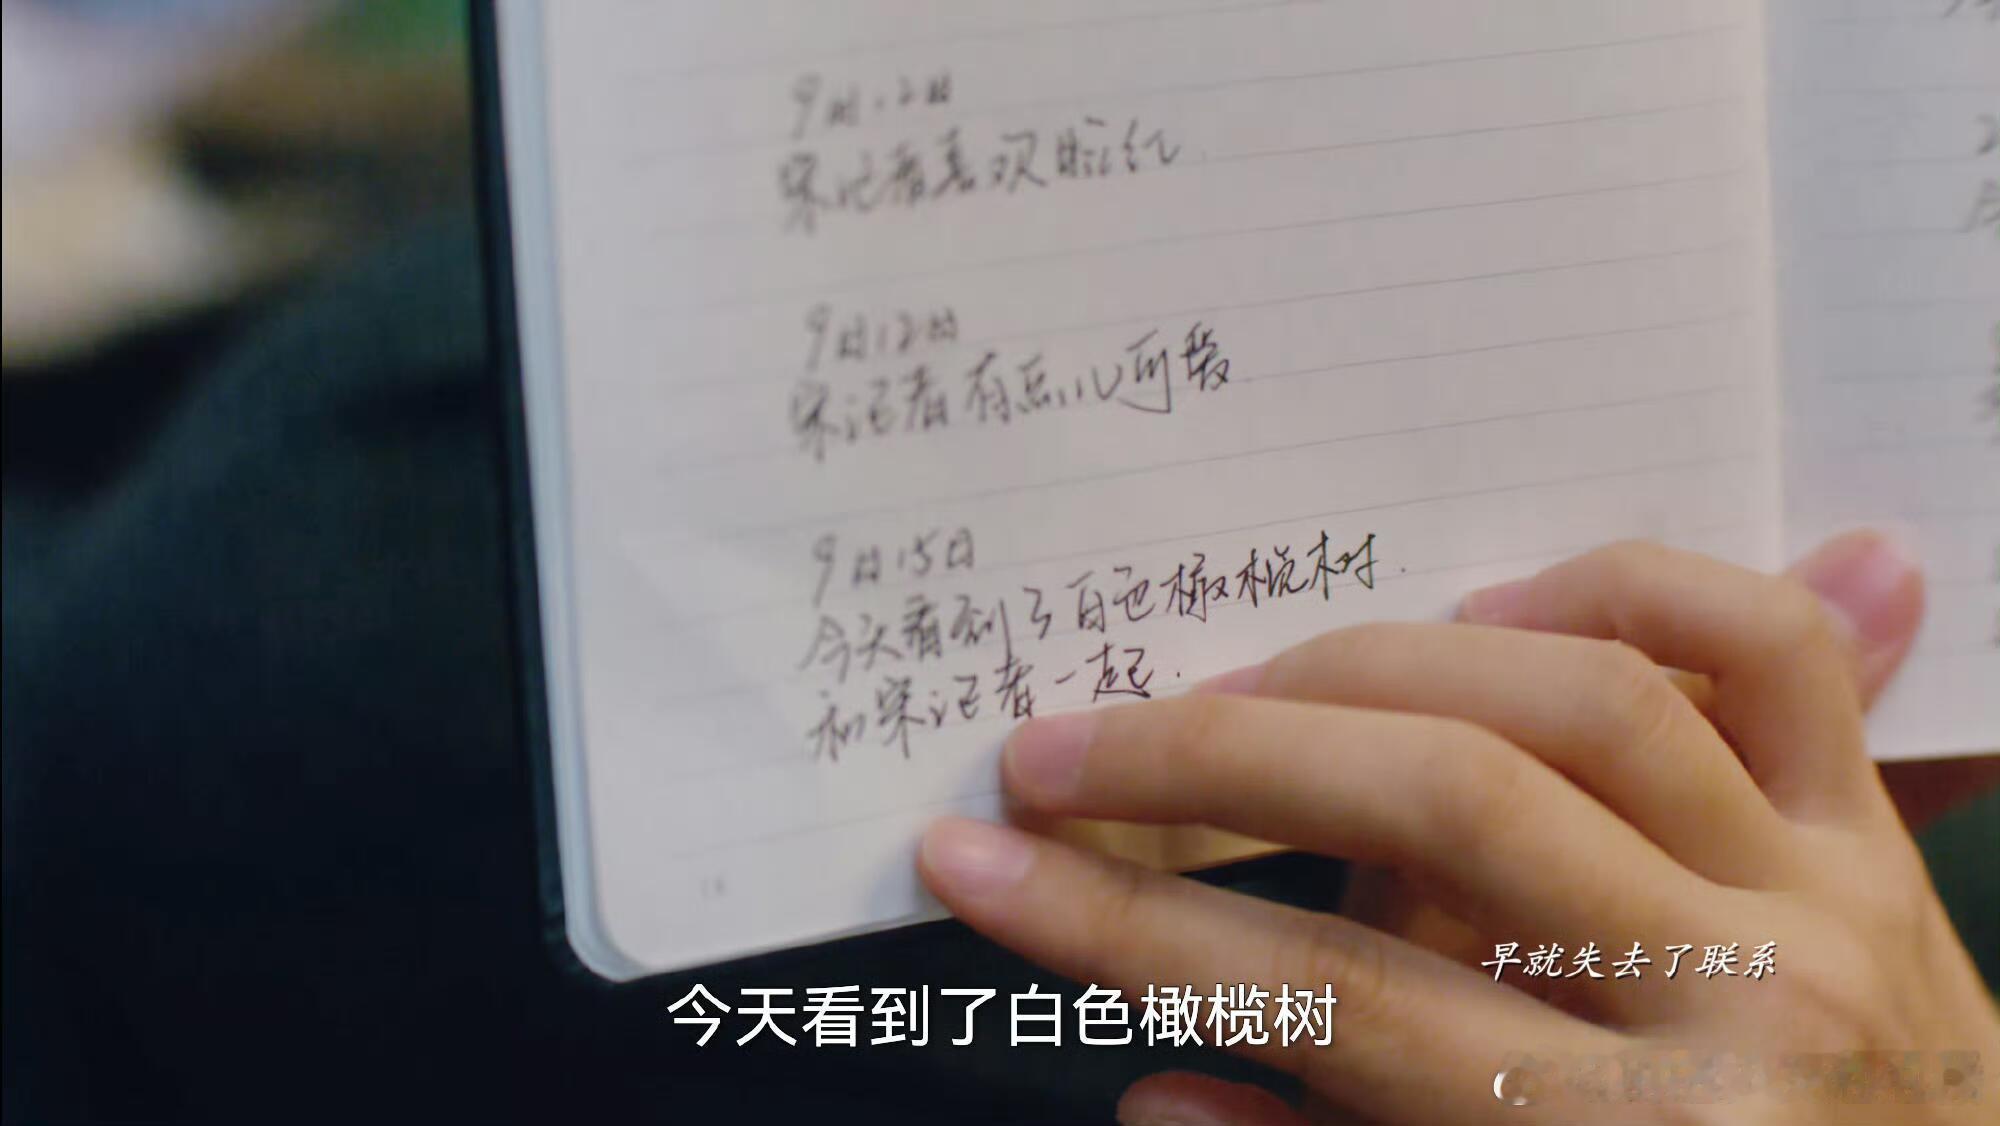 9月2日
宋记者喜欢脸红.
9月12日
宋记者有点儿可爱.
9月15日
今天看到了白色橄榄树.
和宋记者一起.
早就失去了联系
今天看到了白色橄榄树